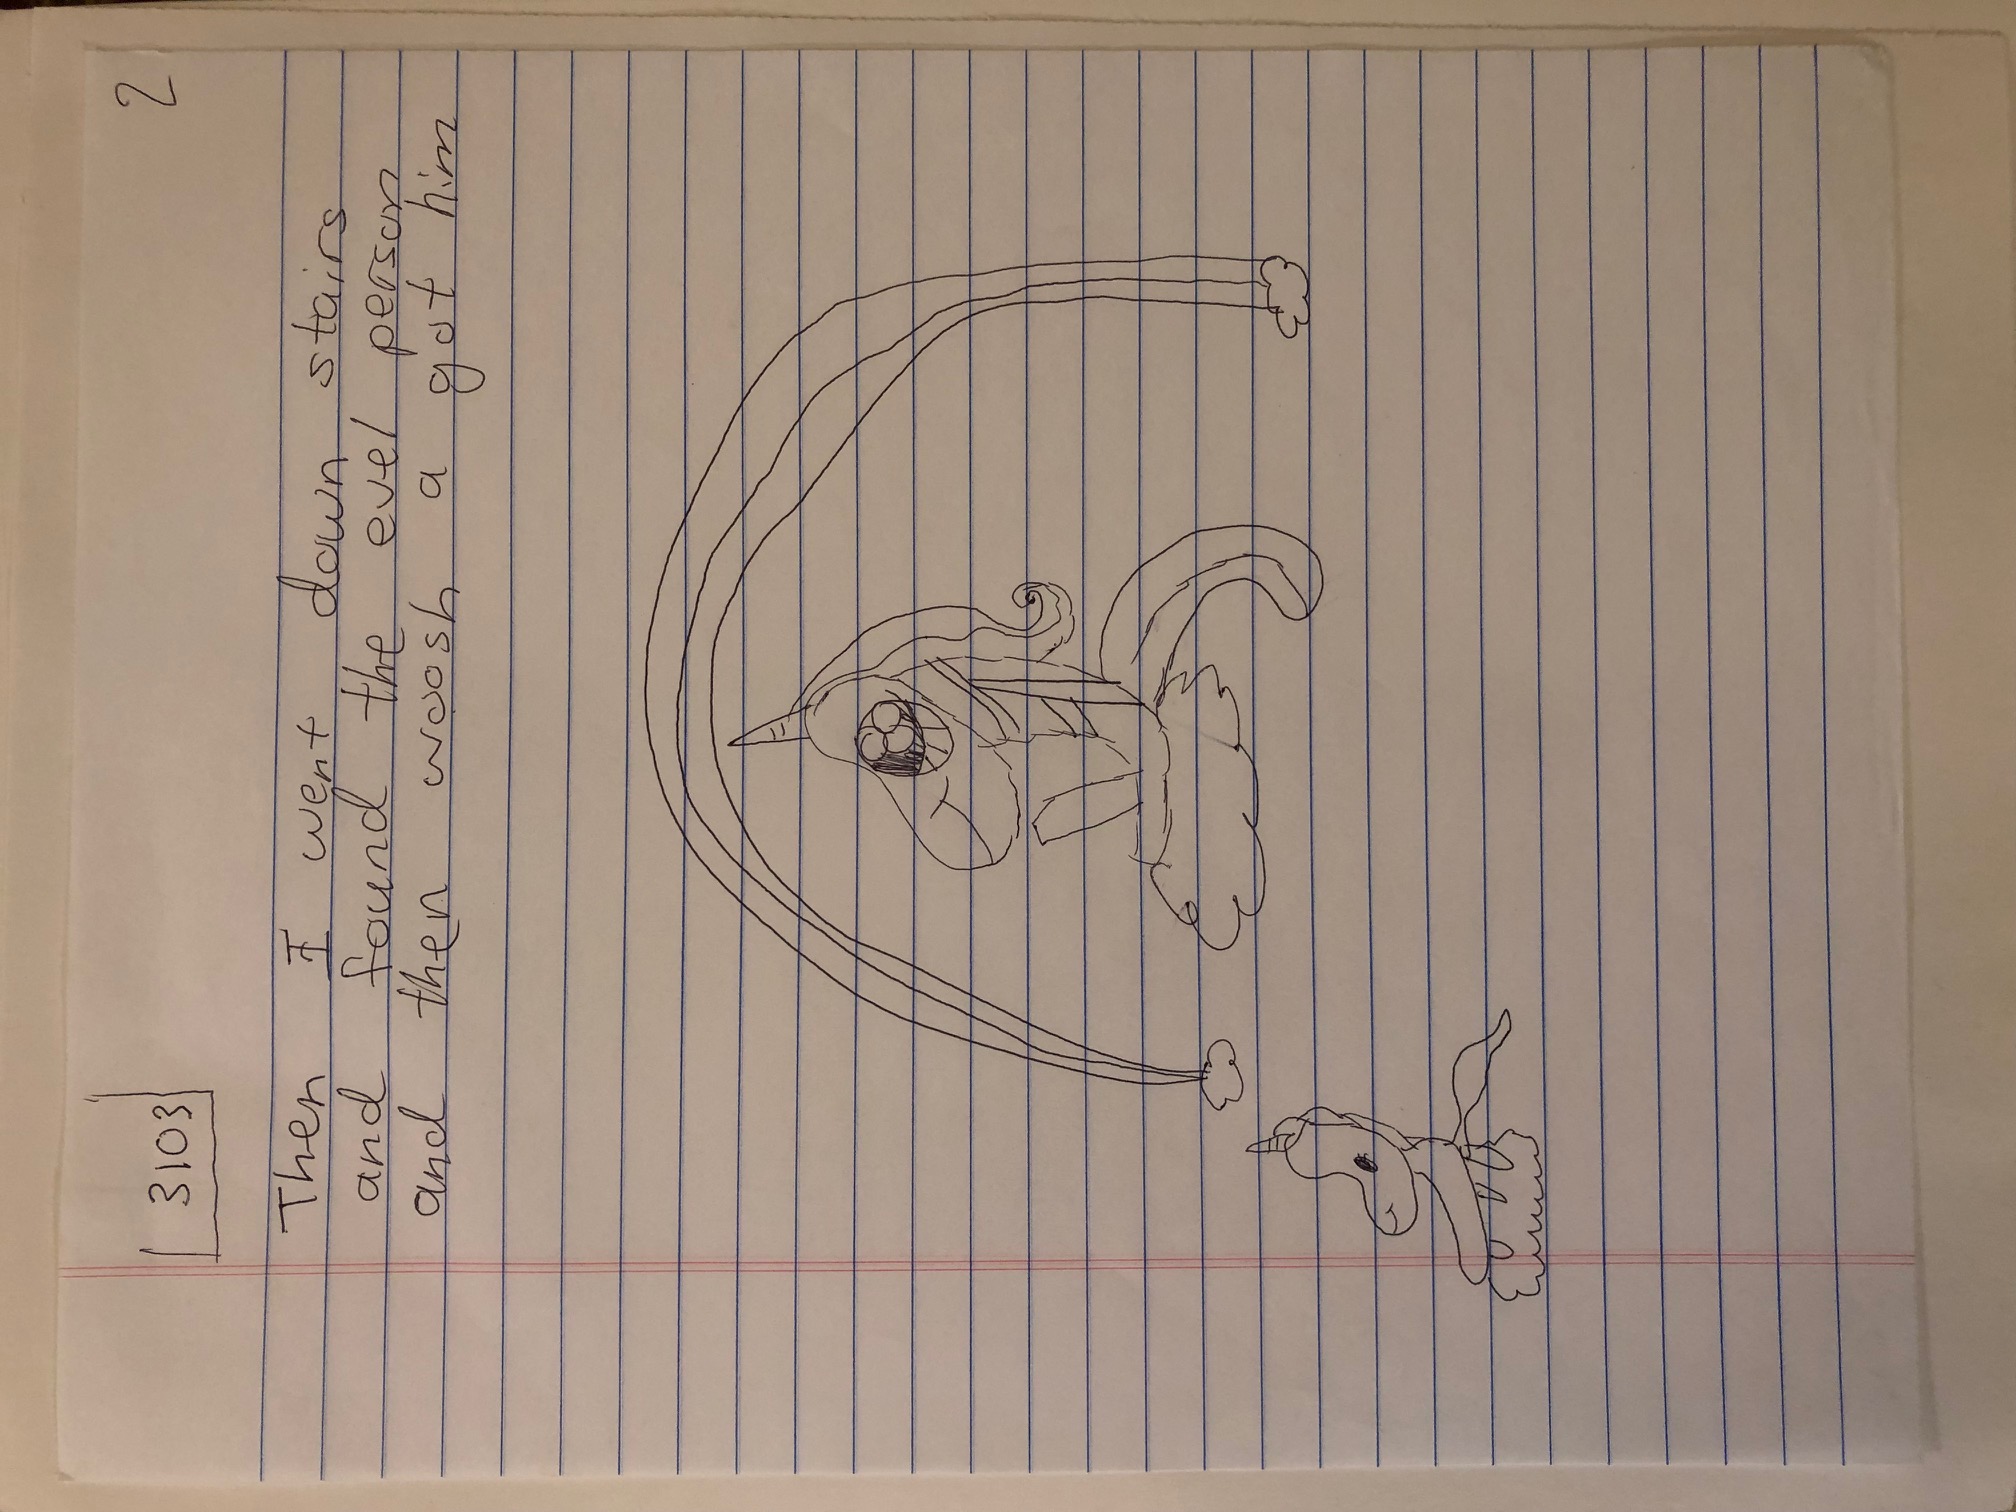 3103
2
Then I went down stairs
and found the evel person
and then woosh a got him